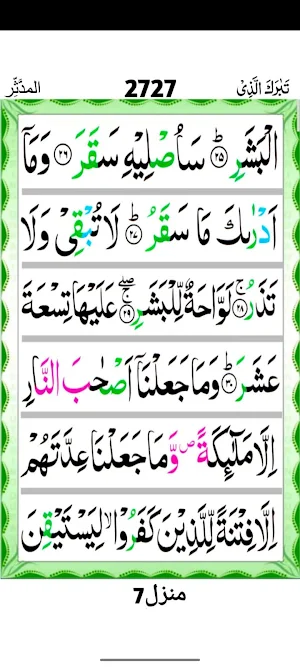 تَبٰرَكَ الَّذِیْ 2727 المدَّثِّر
الْبَشَرِ ؕ ﴿۲۵﴾ سَاُصْلِیْهِ سَقَرَ ﴿۲۶﴾ وَمَاۤ
اَدْرٰىكَ مَا سَقَرُ ؕ ﴿۲۷﴾ لَا تُبْقِیْ وَلَا
تَذَرُ ۚ ﴿۲۸﴾ لَوَّاحَةٌ لِّلْبَشَرِ ۚۖ ﴿۲۹﴾ عَلَیْهَا تِسْعَةَ
عَشَرَ ؕ ﴿۳۰﴾ وَمَا جَعَلْنَاۤ اَصْحٰبَ النَّارِ
اِلَّا مَلٰٓىِٕكَةً ۪ وَّمَا جَعَلْنَا عِدَّتَهُمْ
اِلَّا فِتْنَةً لِّلَّذِیْنَ كَفَرُوْا ۙ لِیَسْتَیْقِنَ
منزل7